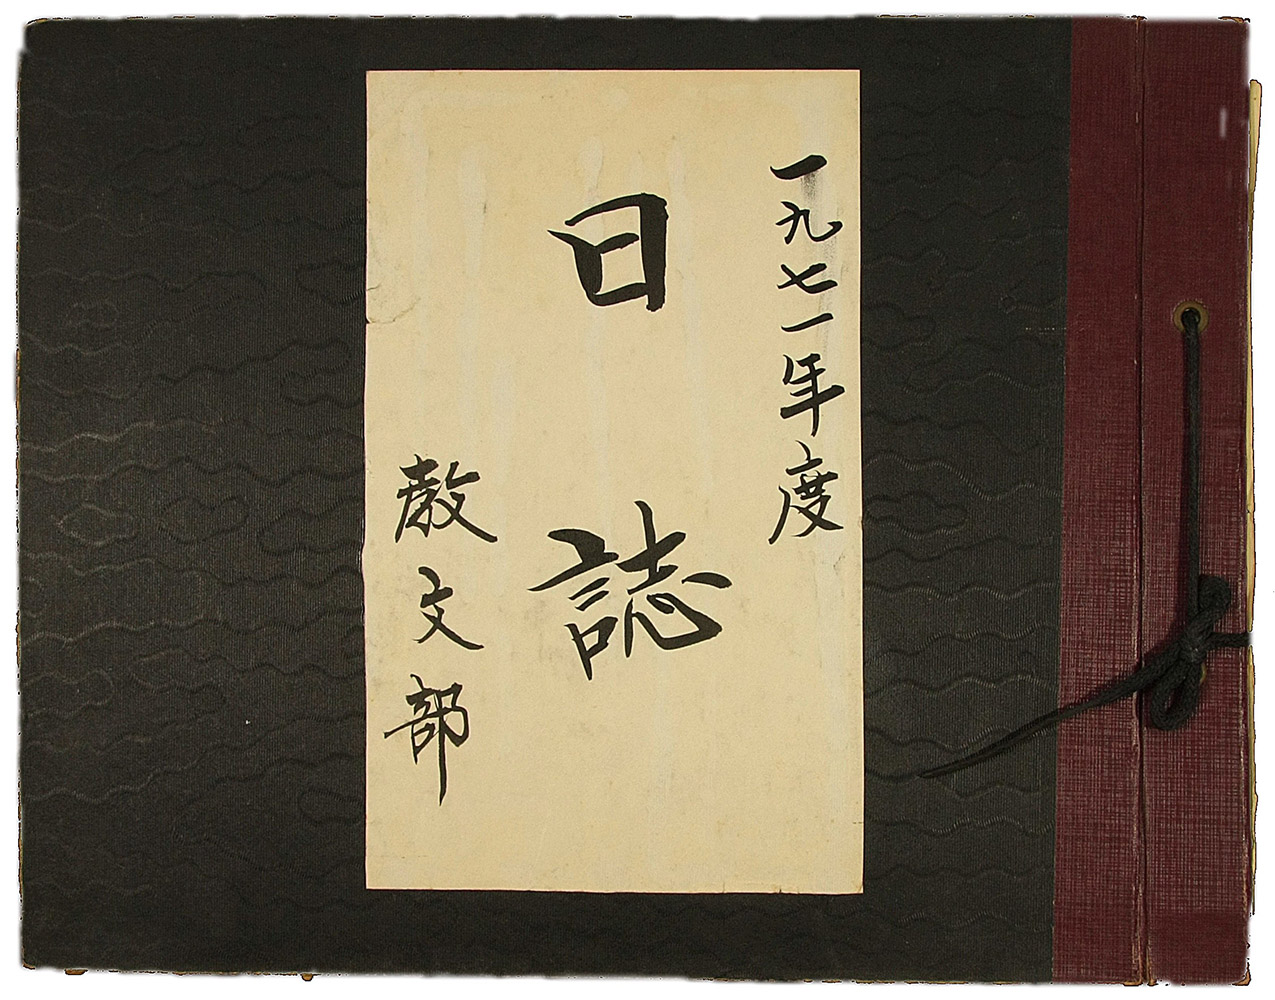 一九七一年度
日誌
教文部